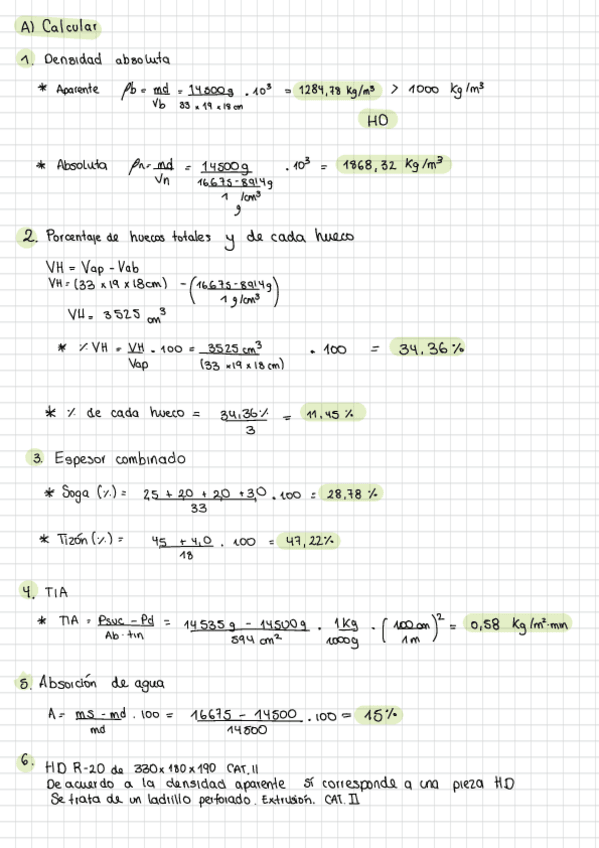 A) Calcular
1. Densidad absoluta
* Aparente ρb = md/Vb = 14500g/33 * 19 * 18cm · 10³ = 1284,78 Kg/m³ > 1000 Kg/m³
HD
* Absoluta ρn = md/Vn = 14500g/(16675-8914g/1 g/cm³) · 10³ = 1868,32 Kg/m³
2. Porcentaje de huecos totales y de cada hueco
VH = Vap - Vab
VH = (33 x 19 x 18cm) - (16675-8914g/1 g/cm³)
VH = 3525 cm³
* % VH = VH/Vap · 100 = 3525 cm³/(33 x 19 x 18 cm) · 100 = 34,36 %
* % de cada hueco = 34,36%/3 = 11,45 %
3. Espesor combinado
* Soga (%) = 2,5 + 2,0 + 2,0 + 3,0/33 · 100 = 28,78 %
* Tizón (%) = 4,5 + 4,0/18 · 100 = 47,22%
4. TIA
* TIA = Psuc - Pd/Ab · tin = 14535 g - 14500 g/594 cm² · 1 Kg/1000g · (100 cm/1 m)² = 0,58 Kg/m²·min
5. Absorción de agua
A = ms - md/md · 100 = 16675 - 14500/14500 · 100 = 15%
6. HD R-20 de 330 x 180 x 190 CAT. II
De acuerdo a la densidad aparente sí corresponde a una pieza HD
Se trata de un ladrillo perforado. Extrusión. CAT. II